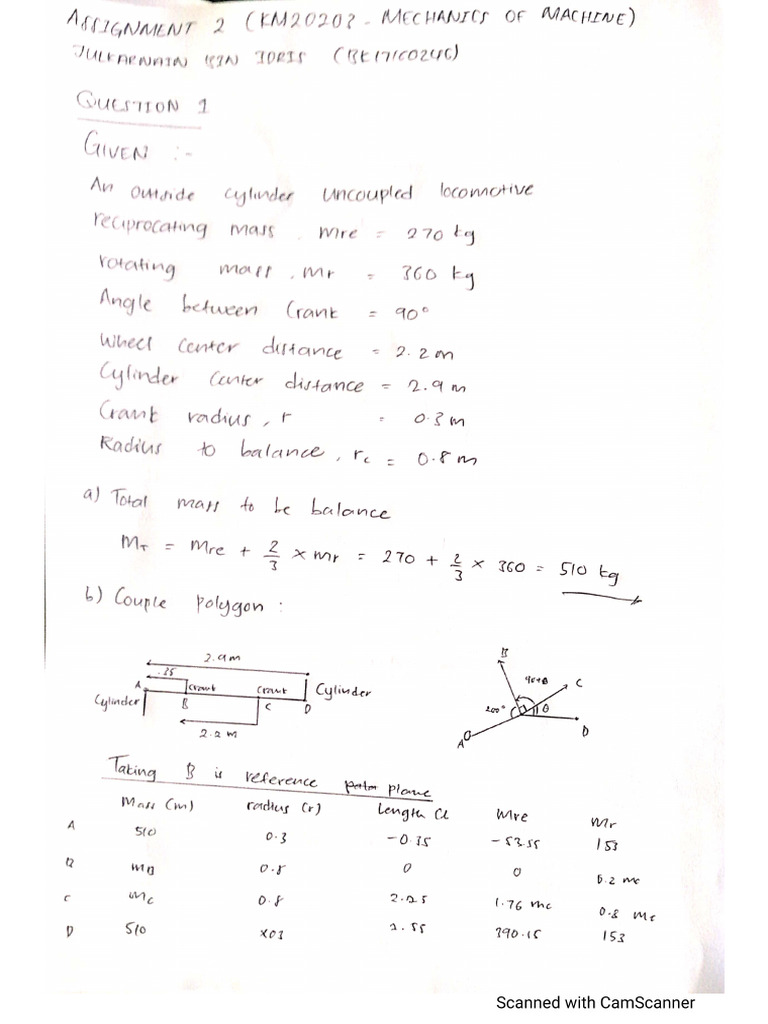 ASSIGNMENT 2 (KM20203 - MECHANICS OF MACHINE)
JULKARNAIN BIN IDRIS (BK17160246)
QUESTION 1
GIVEN :-
An outside cylinder uncoupled locomotive
reciprocating mass, mre = 270 kg
rotating mass, mr = 360 kg
Angle between Crank = 90°
Wheel center distance = 2.2 m
Cylinder center distance = 2.9 m
Crank radius, r = 0.3 m
Radius to balance, rc = 0.8 m
a) Total mass to be balance
MT = Mre + 2/3 × mr = 270 + 2/3 × 360 = 510 kg
b) Couple polygon :
2.9m
.35
A Crank Crank Cylinder
Cylinder B C D
2.2 m
B
90+θ C
200° θ
A D
Taking B is reference plane
Mass (m) radius (r) Length (l Mre Mr
A 510 0.3 -0.35 -53.55 153
B mB 0.8 0 0
C mc 0.8 1.76 mc 0.8 mc
D 510 2.55 390.15 153
Scanned with CamScanner